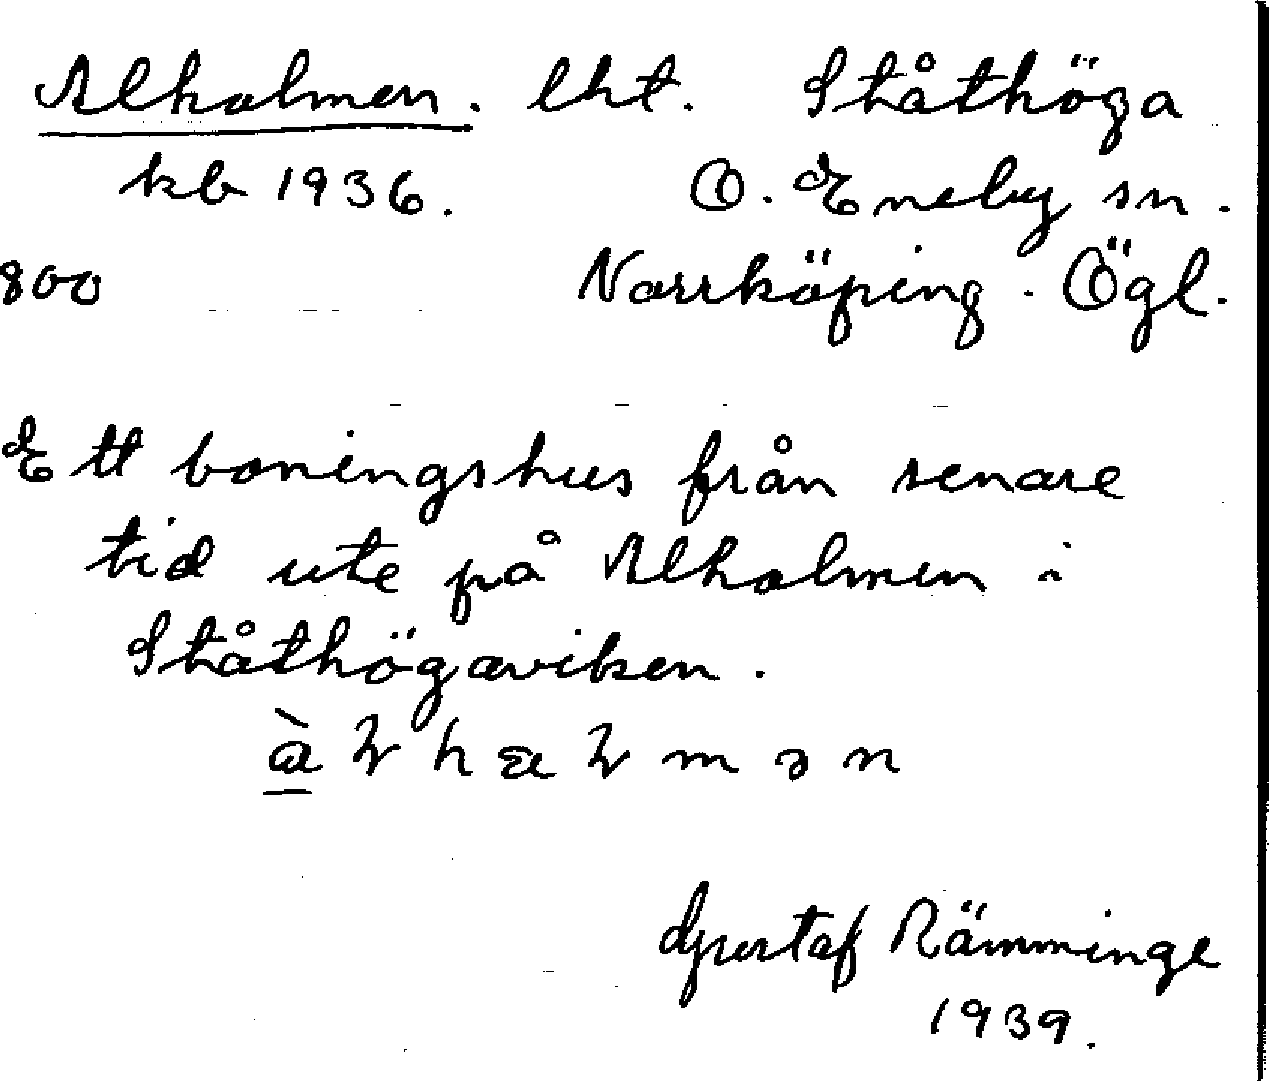 Alholmen. lht. Ståthöga
kb 1936. Ö. Eneby sn.
800 Norrköping. Ögl.
Ett boningshus från senare
tid ute på Alholmen i
Ståthögaviken.
Gustaf Rämminge
1939.